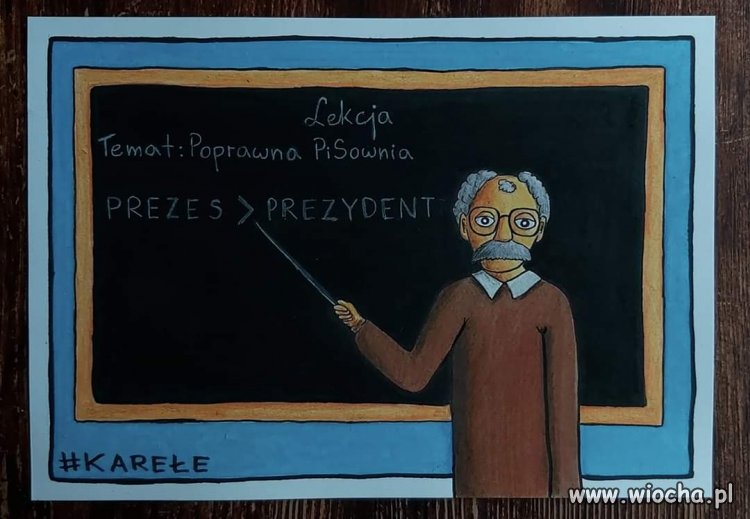 Lekcja
Temat: Poprawna PiSownia
PREZES > PREZYDENT
#KAREŁE
www.wiocha.pl